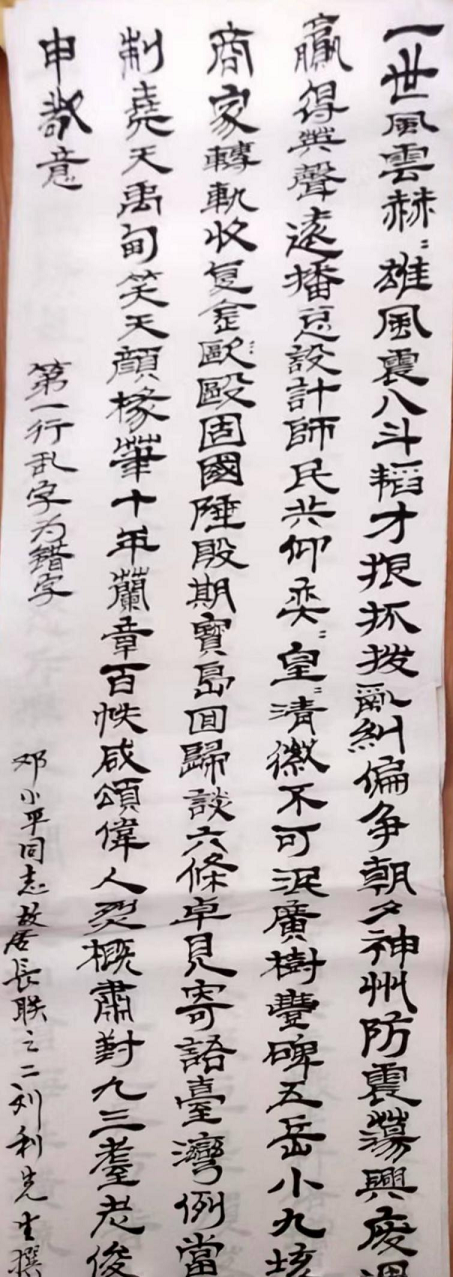 一世風雲赫〻雄風震八斗韜才狠抓拨亂糾偏争朝夕神州防震蕩興废
贏得英聲遠播总設計師民共仰奕〻皇〻清徽不可泯廣樹豐碑五岳小九垓
商家轉軌收复金歐〻毆固國陲殷期寶島回歸談六條卓見寄語臺灣例當
制堯天禹甸笑天顔椽筆十年蘭章百帙咸頌偉人烈概肅對九三耋老俊
申敬意
第一行乱字为错字
邓小平同志故居長联之二刘利先生撰